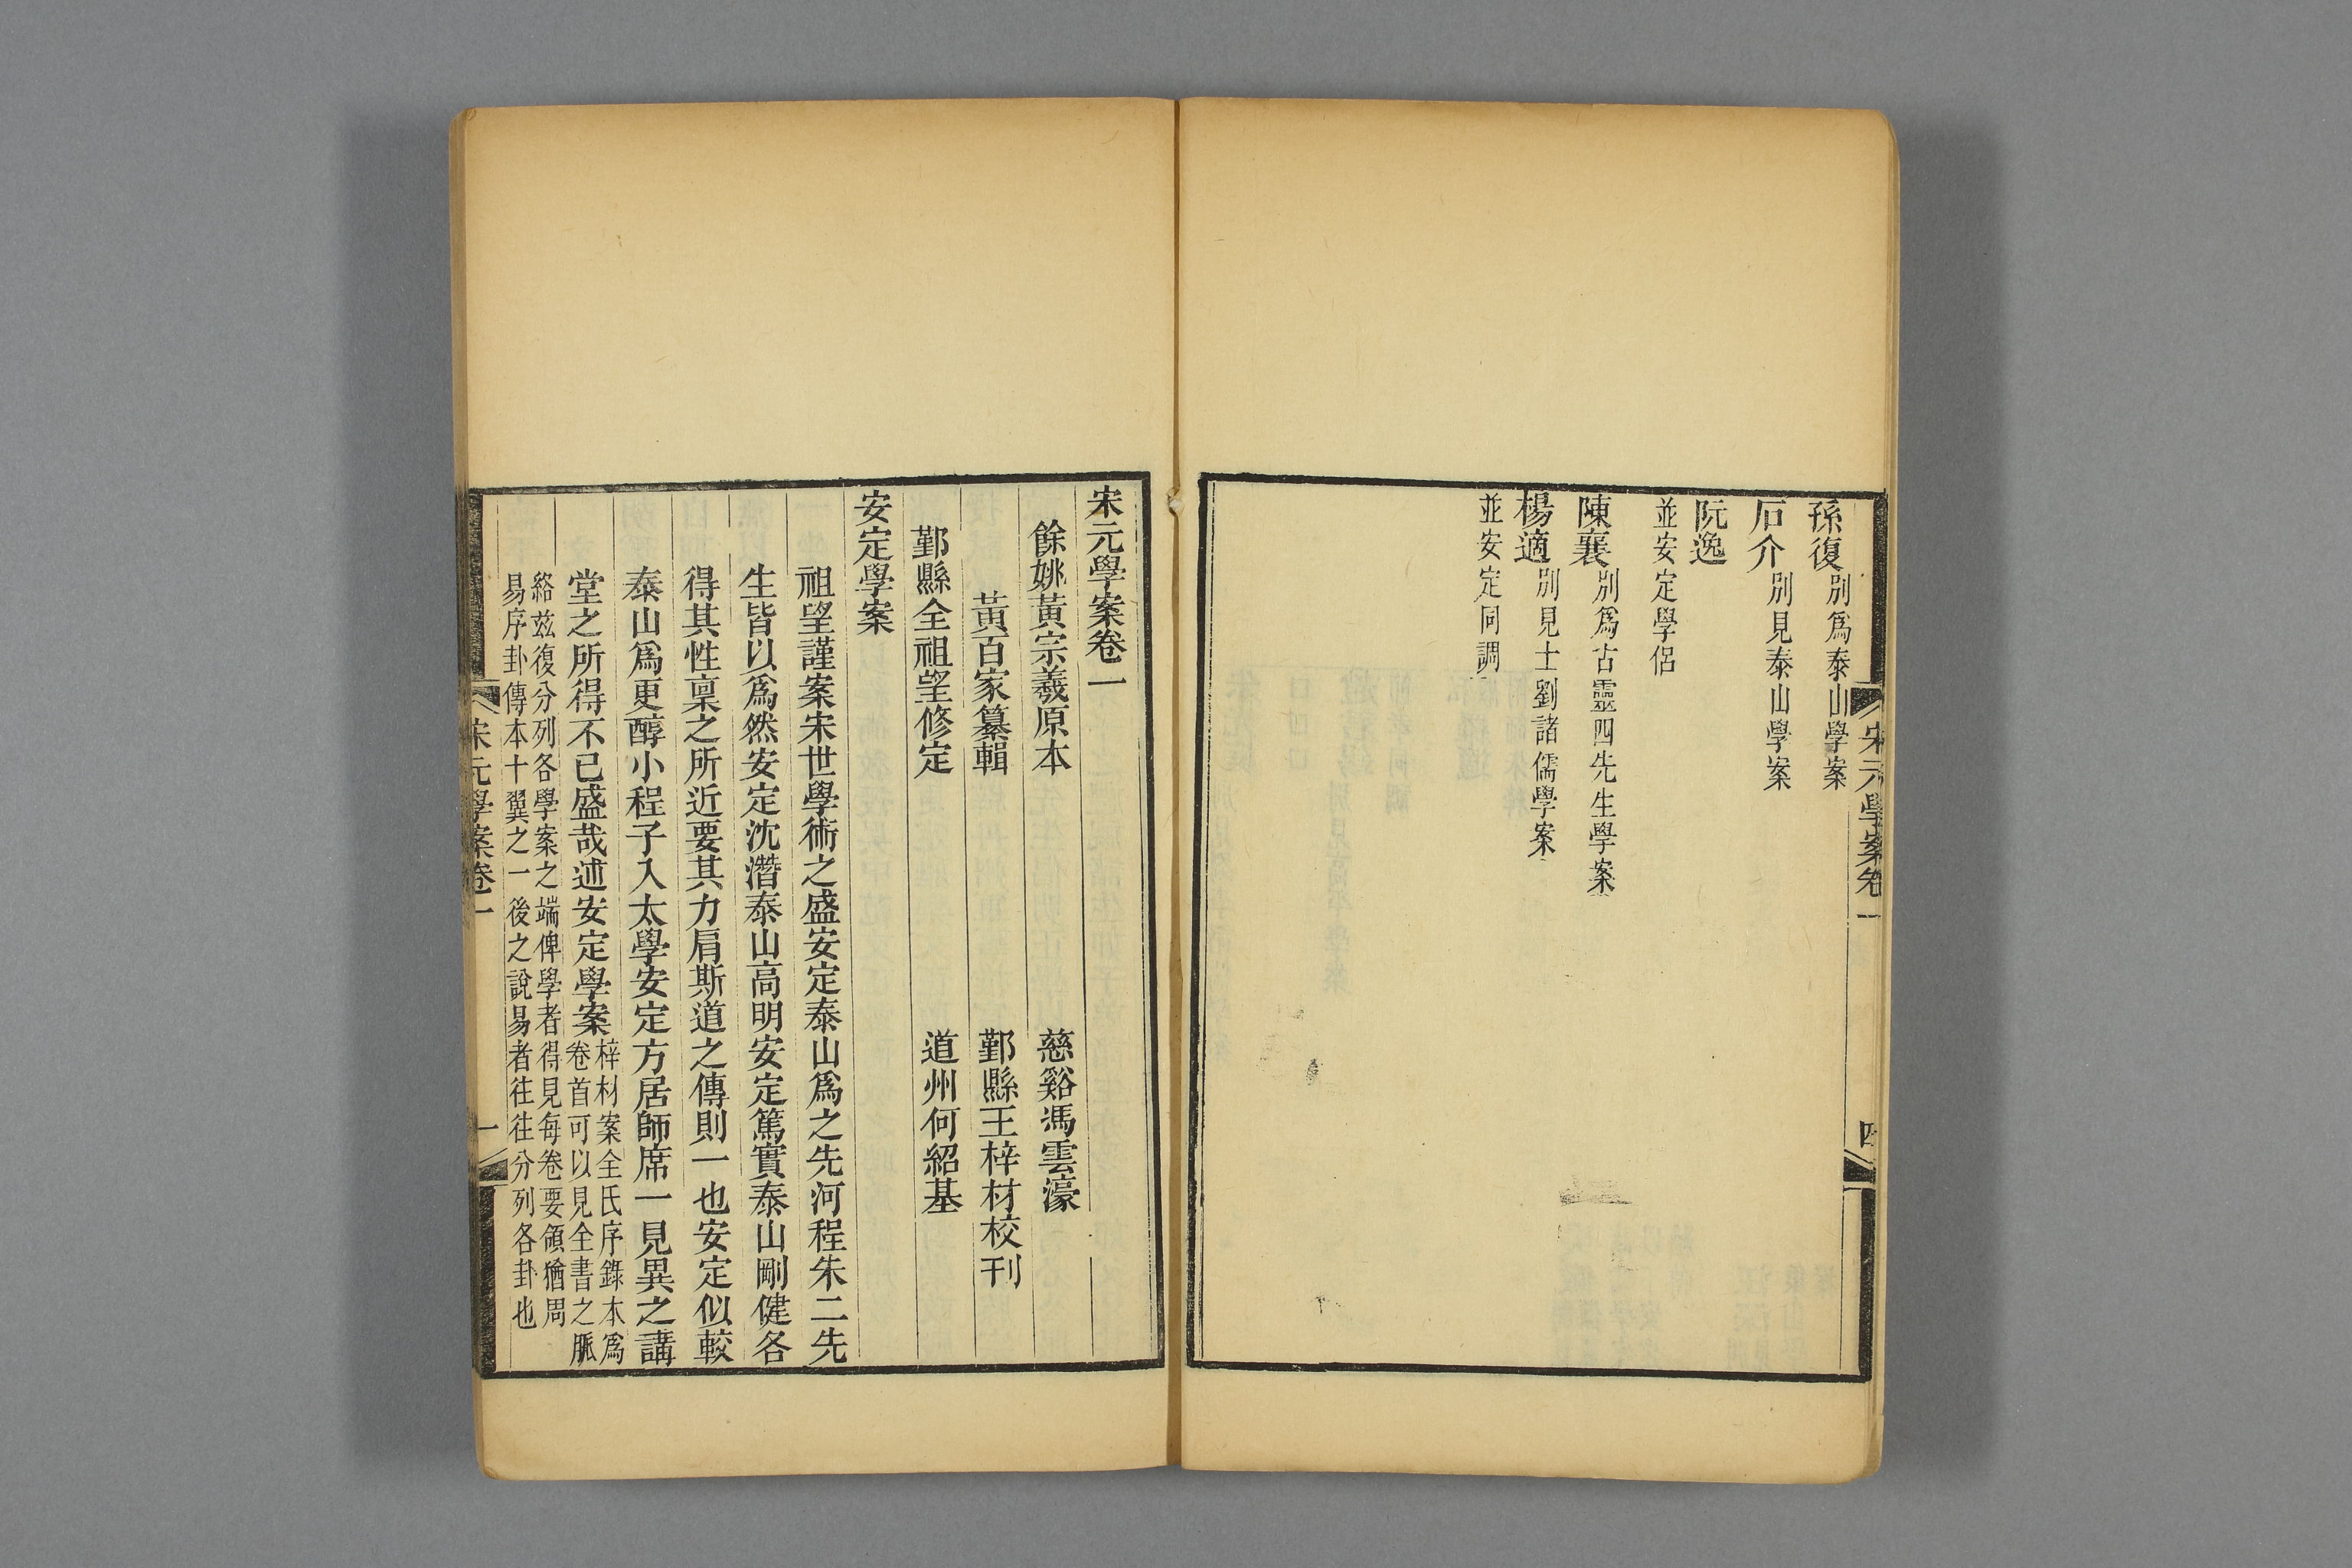 宋元學案卷一
四
孫復別爲泰山學案
石介別見泰山學案
阮逸
並安定學侶
陳襄別爲古靈四先生學案
楊適別見士劉諸儒學案
並安定同調
宋元學案卷一
餘姚黃宗羲原本
慈谿馮雲濠
黃百家纂輯
鄞縣王梓材校刊
鄞縣全祖望修定
道州何紹基
安定學案
祖望謹案宋世學術之盛安定泰山爲之先河程朱二先
生皆以爲然安定沈潛泰山高明安定篤實泰山剛健各
得其性稟之所近要其力肩斯道之傳則一也安定似較
泰山爲更醇小程子入太學安定方居師席一見異之講
堂之所得不已盛哉述安定學案梓材案全氏序錄本爲
卷首可以見全書之脈
絡茲復分列各學案之端俾學者得見每卷要領猶周
易序卦傳本十翼之一後之說易者往往分列各卦也
宋元學案卷一
一